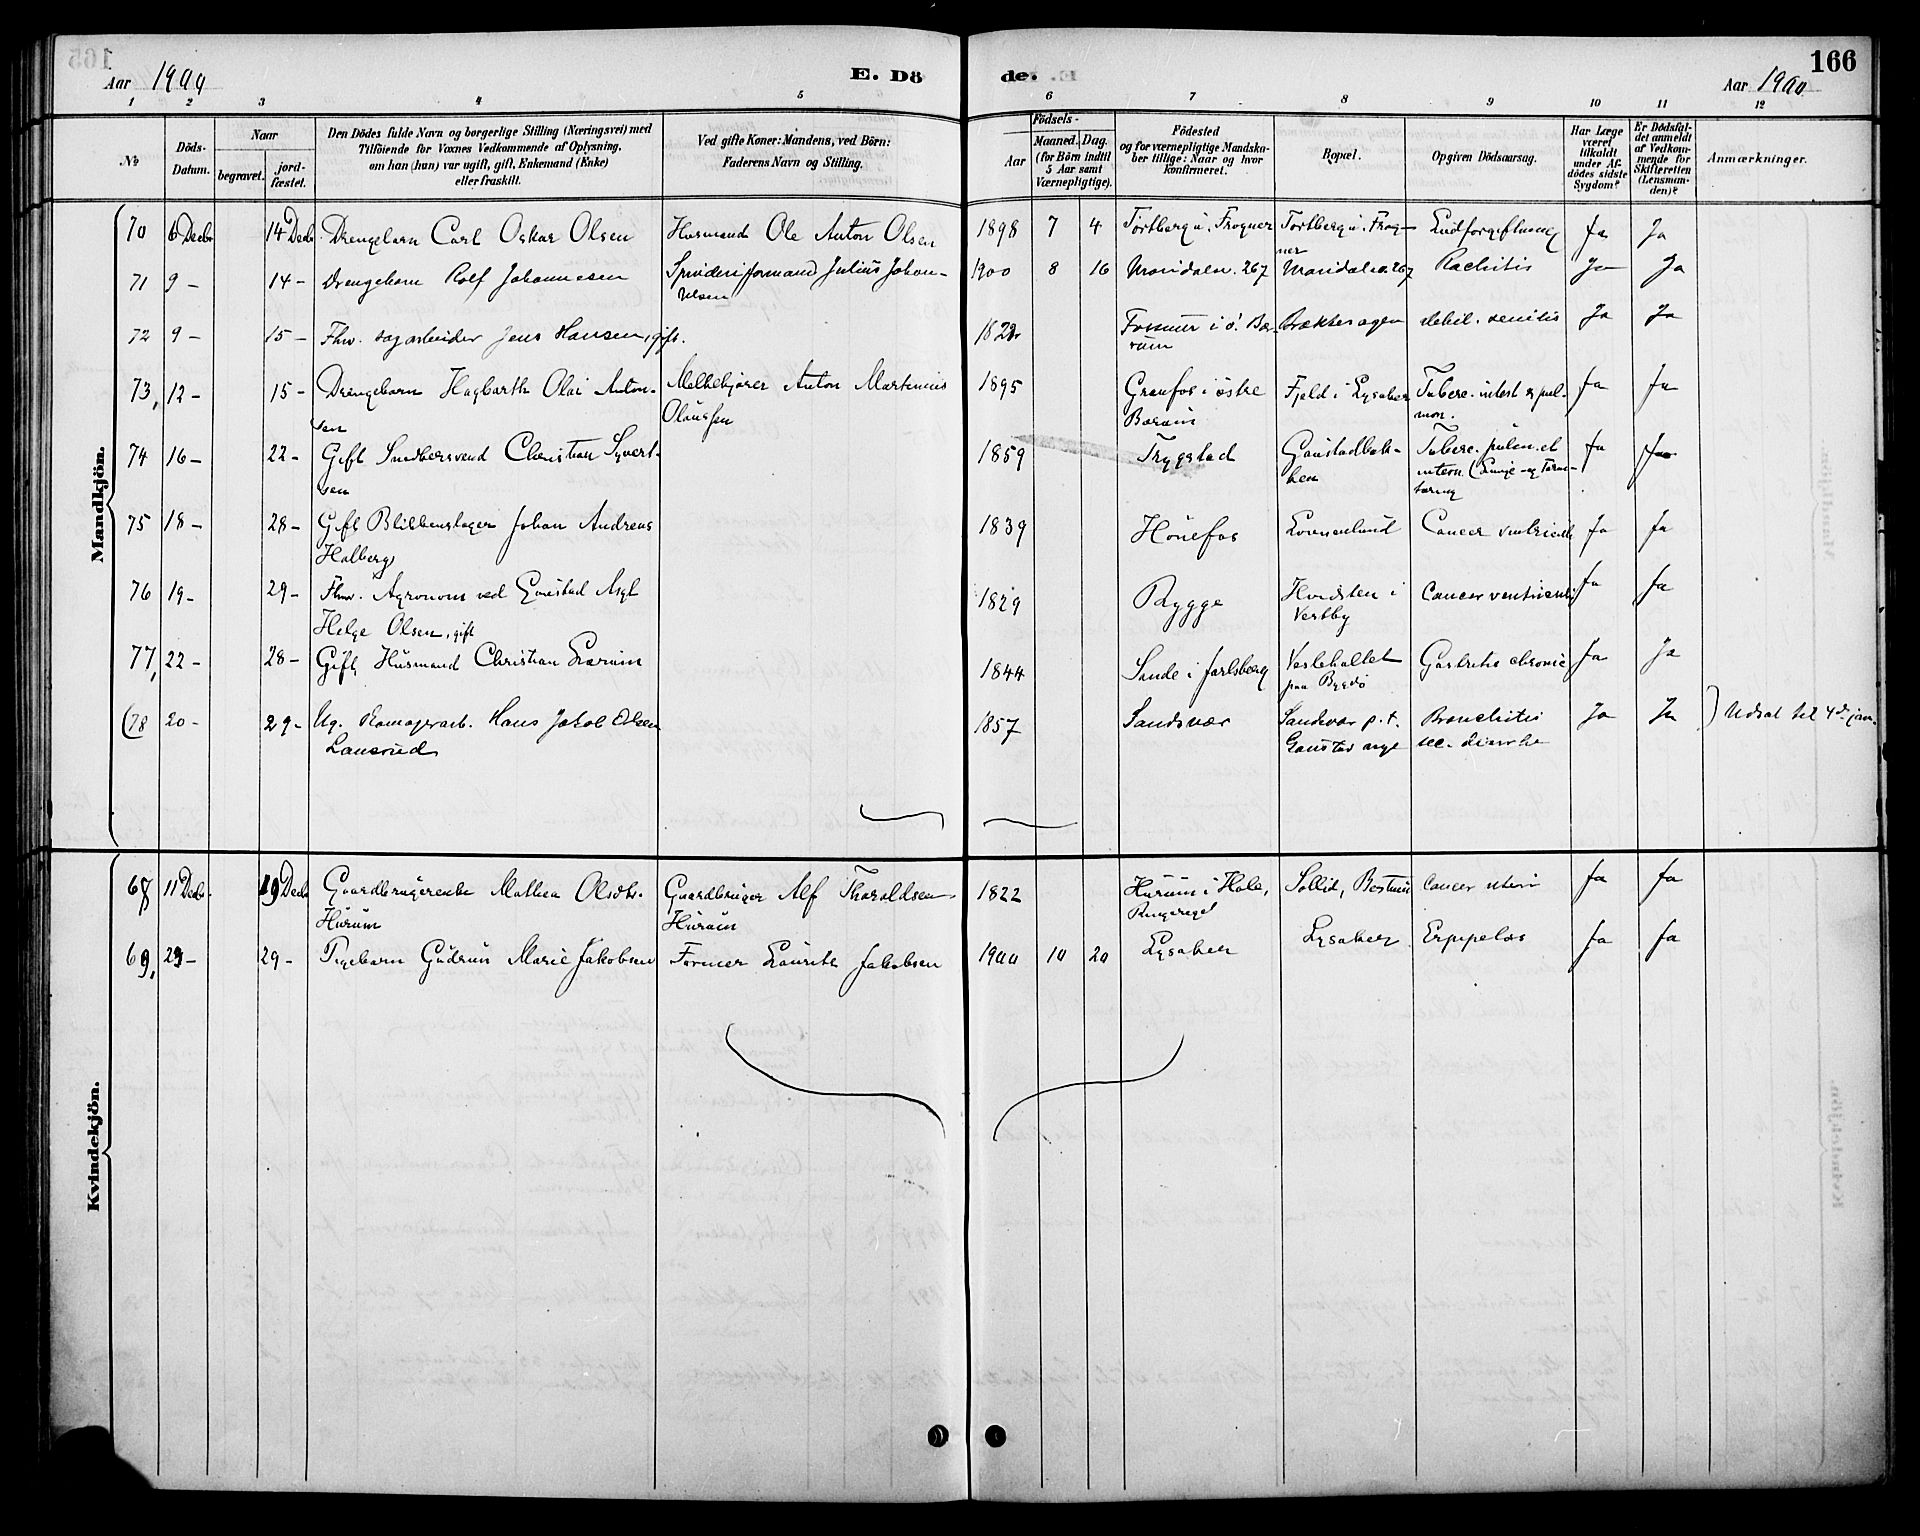 166
Aar 1900
E. Dö
de.
Aar 1900
1 2 3 4 5 6 7 8 9 10 11 12
№
Döds-Datum.
Naar
begravet.
jord-fæstet.
Den Dödes fulde Navn og borgerlige Stilling (Næringsvei) med
Tilföiende for Voxnes Vedkommende af Oplysning,
om han (hun) var ugift, gift, Enkemand (Enke)
eller fraskilt.
Ved gifte Koner: Mandens, ved Börn:
Faderens Navn og Stilling.
Födsels-
Aar
Maaned. Dag.
(for Börn indtil
5 Aar samt
Værnepligtige).
Födested
og for værnepligtige Mandska-
ber tillige: Naar og hvor
konfirmeret.
Bopæl.
Opgiven Dödsaarsag.
Har Læge
været
tilkaldt
under Af-
dödes sidste
Sygdom?
Er Dödsfal-
det anmeldt
af Vedkom-
mende for
Skifteretten
(Lensman-
den)?
Anmærkninger.
Mandkjön.
70 6 Decbr 14 Decbr. Drengebarn Carl Oskar Olsen Husmand Ole Anton Olsen 1898 7 4 Tortberg u. Frogner Tortberg u. Frog-
ner Ja Ja
71 9 - 14 - Drengebarn Rolf Johannesen Spinderiformand Julius Johan-
nesen 1900 8 16 Maridalsv. 267 Maridalsv. 267 Rachitis Ja Ja
72 9 - 15 - Fhv. sagarbeider Jens Hansen, gift. Fossum i ö. Bæ-
rum Brækkehagen debil. senilis Ja Ja
73, 12 - 15 - Drengebarn Hagbarth Olai Anton-
sen Melkekjører Anton Martinius
Olaussen 1895 Granfos i östre
Bærum Fjeld i Lysaker Tuberc. intest & pul-
mon. Ja Ja
74 16 - 22 - Gift Christian Syvert-
sen 1859 Trygstad Gaustadbak-
ken Tuberc. pulm. et
intern (Lunge- og Tarm-
tæring Ja Ja
75 18 - 28 - Gift Blikkenslager Johan Andreas
Halberg 1839 Hönefos Lovisenlund Cancer ventriculi Ja Ja
76 19 - 29 - Fhv. Agronom ved Gaustad Asyl
Helge Olsen, gift 1829 Rygge Hvidsten i
Vestby Cancer ventriculi Ja Ja
77, 22 - 28 - Gift Husmand Christian Larsen 1844 Sande i Jarlsberg
paa Bygdö Gastritis chronic Ja Ja
(78 20 - 29 - Ug. Hans Jakob Olsen
1857 Sandsvær Sandsvær p.t.
Gaustad asyl Bronchitis
sec. diarrhe Ja Ja ) Udsat til 4de jan.
Kvindekjön.
68 11 Decbr. 19 Decbr Gaardbrugerenke Mathea Olsdtr.
Hurum Gaardbruger Alf Tharaldsen
Hurum 1822 Hurum i Hole,
Ringerige Sollid, Bestum Cancer uteri Ja Ja
69, 23 - 29 - Pigebarn Gudrun Marie Jakobsen Former Lauritz Jakobsen 1900 10 20 Lysaker Lysaker Ja Ja